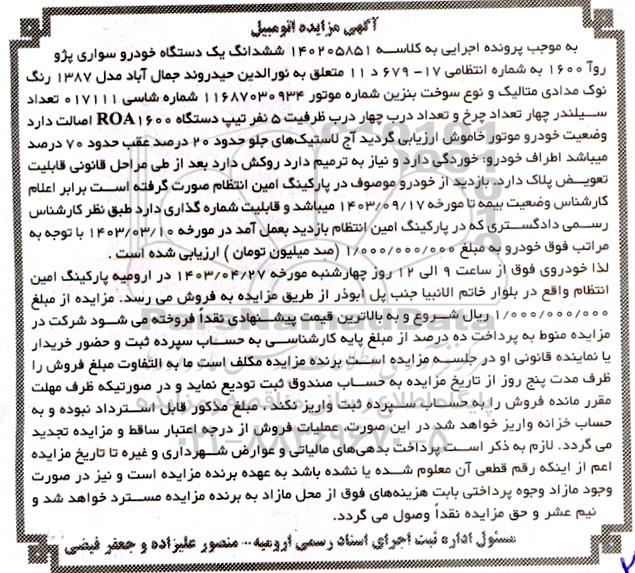 آگهی مزایده اتومبیل
به موجب پرونده اجرایی به کلاسه ۱۴۰۲۰۵۸۵۱ ششدانگ یک دستگاه خودرو سواری پژو
روآ ۱۶۰۰ به شماره انتظامی ۱۷- ۶۷۹ د ۱۱ متعلق به نورالدین حیدروند جمال آباد مدل ۱۳۸۷ رنگ
نوک مدادی متالیک و نوع سوخت بنزین شماره موتور ۱۱۶۸۷۰۳۰۹۳۴ شماره شاسی ۰۱۷۱۱۱ تعداد
سیلندر چهار تعداد چرخ و تعداد درب چهار درب ظرفیت ۵ نفر تیپ دستگاه ROA۱۶۰۰ اصالت دارد
وضعیت خودرو موتور خاموش ارزیابی گردید آج لاستیک‌های جلو حدود ۲۰ درصد عقب حدود ۷۰ درصد
میباشد اطراف خودرو: خوردگی دارد و نیاز به ترمیم دارد روکش دارد بعد از طی مراحل قانونی قابلیت
تعویض پلاک دارد. بازدید از خودرو موصوف در پارکینگ امین انتظام صورت گرفته است برابر اعلام
کارشناس وضعیت بیمه تا مورخه ۱۴۰۳/۰۹/۱۷ میباشد و قابلیت شماره گذاری دارد طبق نظر کارشناس
رسمی دادگستری که در پارکینگ امین انتظام بازدید بعمل آمد در مورخه ۱۴۰۳/۰۳/۱۰ با توجه به
مراتب فوق خودرو به مبلغ ۱/۰۰۰/۰۰۰/۰۰۰ (صد میلیون تومان ) ارزیابی شده است .
لذا خودروی فوق از ساعت ۹ الی ۱۲ روز چهارشنبه مورخه ۱۴۰۳/۰۴/۲۷ در ارومیه پارکینگ امین
انتظام واقع در بلوار خاتم الانبیا جنب پل ابوذر از طریق مزایده به فروش می رسد. مزایده از مبلغ
۱/۰۰۰/۰۰۰/۰۰۰ ریال شروع و به بالاترین قیمت پیشنهادی نقداً فروخته می شود شرکت در
مزایده منوط به پرداخت ده درصد از مبلغ پایه کارشناسی به حساب سپرده ثبت و حضور خریدار
یا نماینده قانونی او در جلسه مزایده است برنده مزایده مکلف است ما به التفاوت مبلغ فروش را
ظرف مدت پنج روز از تاریخ مزایده به حساب صندوق ثبت تودیع نماید و در صورتیکه ظرف مهلت
مقرر مانده فروش را به حساب سپرده ثبت واریز نکند . مبلغ مذکور قابل استرداد نبوده و به
حساب خزانه واریز خواهد شد در این صورت، عملیات فروش از درجه اعتبار ساقط و مزایده تجدید
می گردد. لازم به ذکر است پرداخت بدهی‌های مالیاتی و عوارض شهرداری و غیره تا تاریخ مزایده
اعم از اینکه رقم قطعی آن معلوم شده یا نشده باشد به عهده برنده مزایده است و نیز در صورت
وجود مازاد وجوه پرداختی بابت هزینه‌های فوق از محل مازاد به برنده مزایده مسترد خواهد شد و
نیم عشر و حق مزایده نقداً وصول می گردد.
مسئول اداره ثبت اجرای اسناد رسمی ارومیه... منصور علیزاده و جعفر فیضی